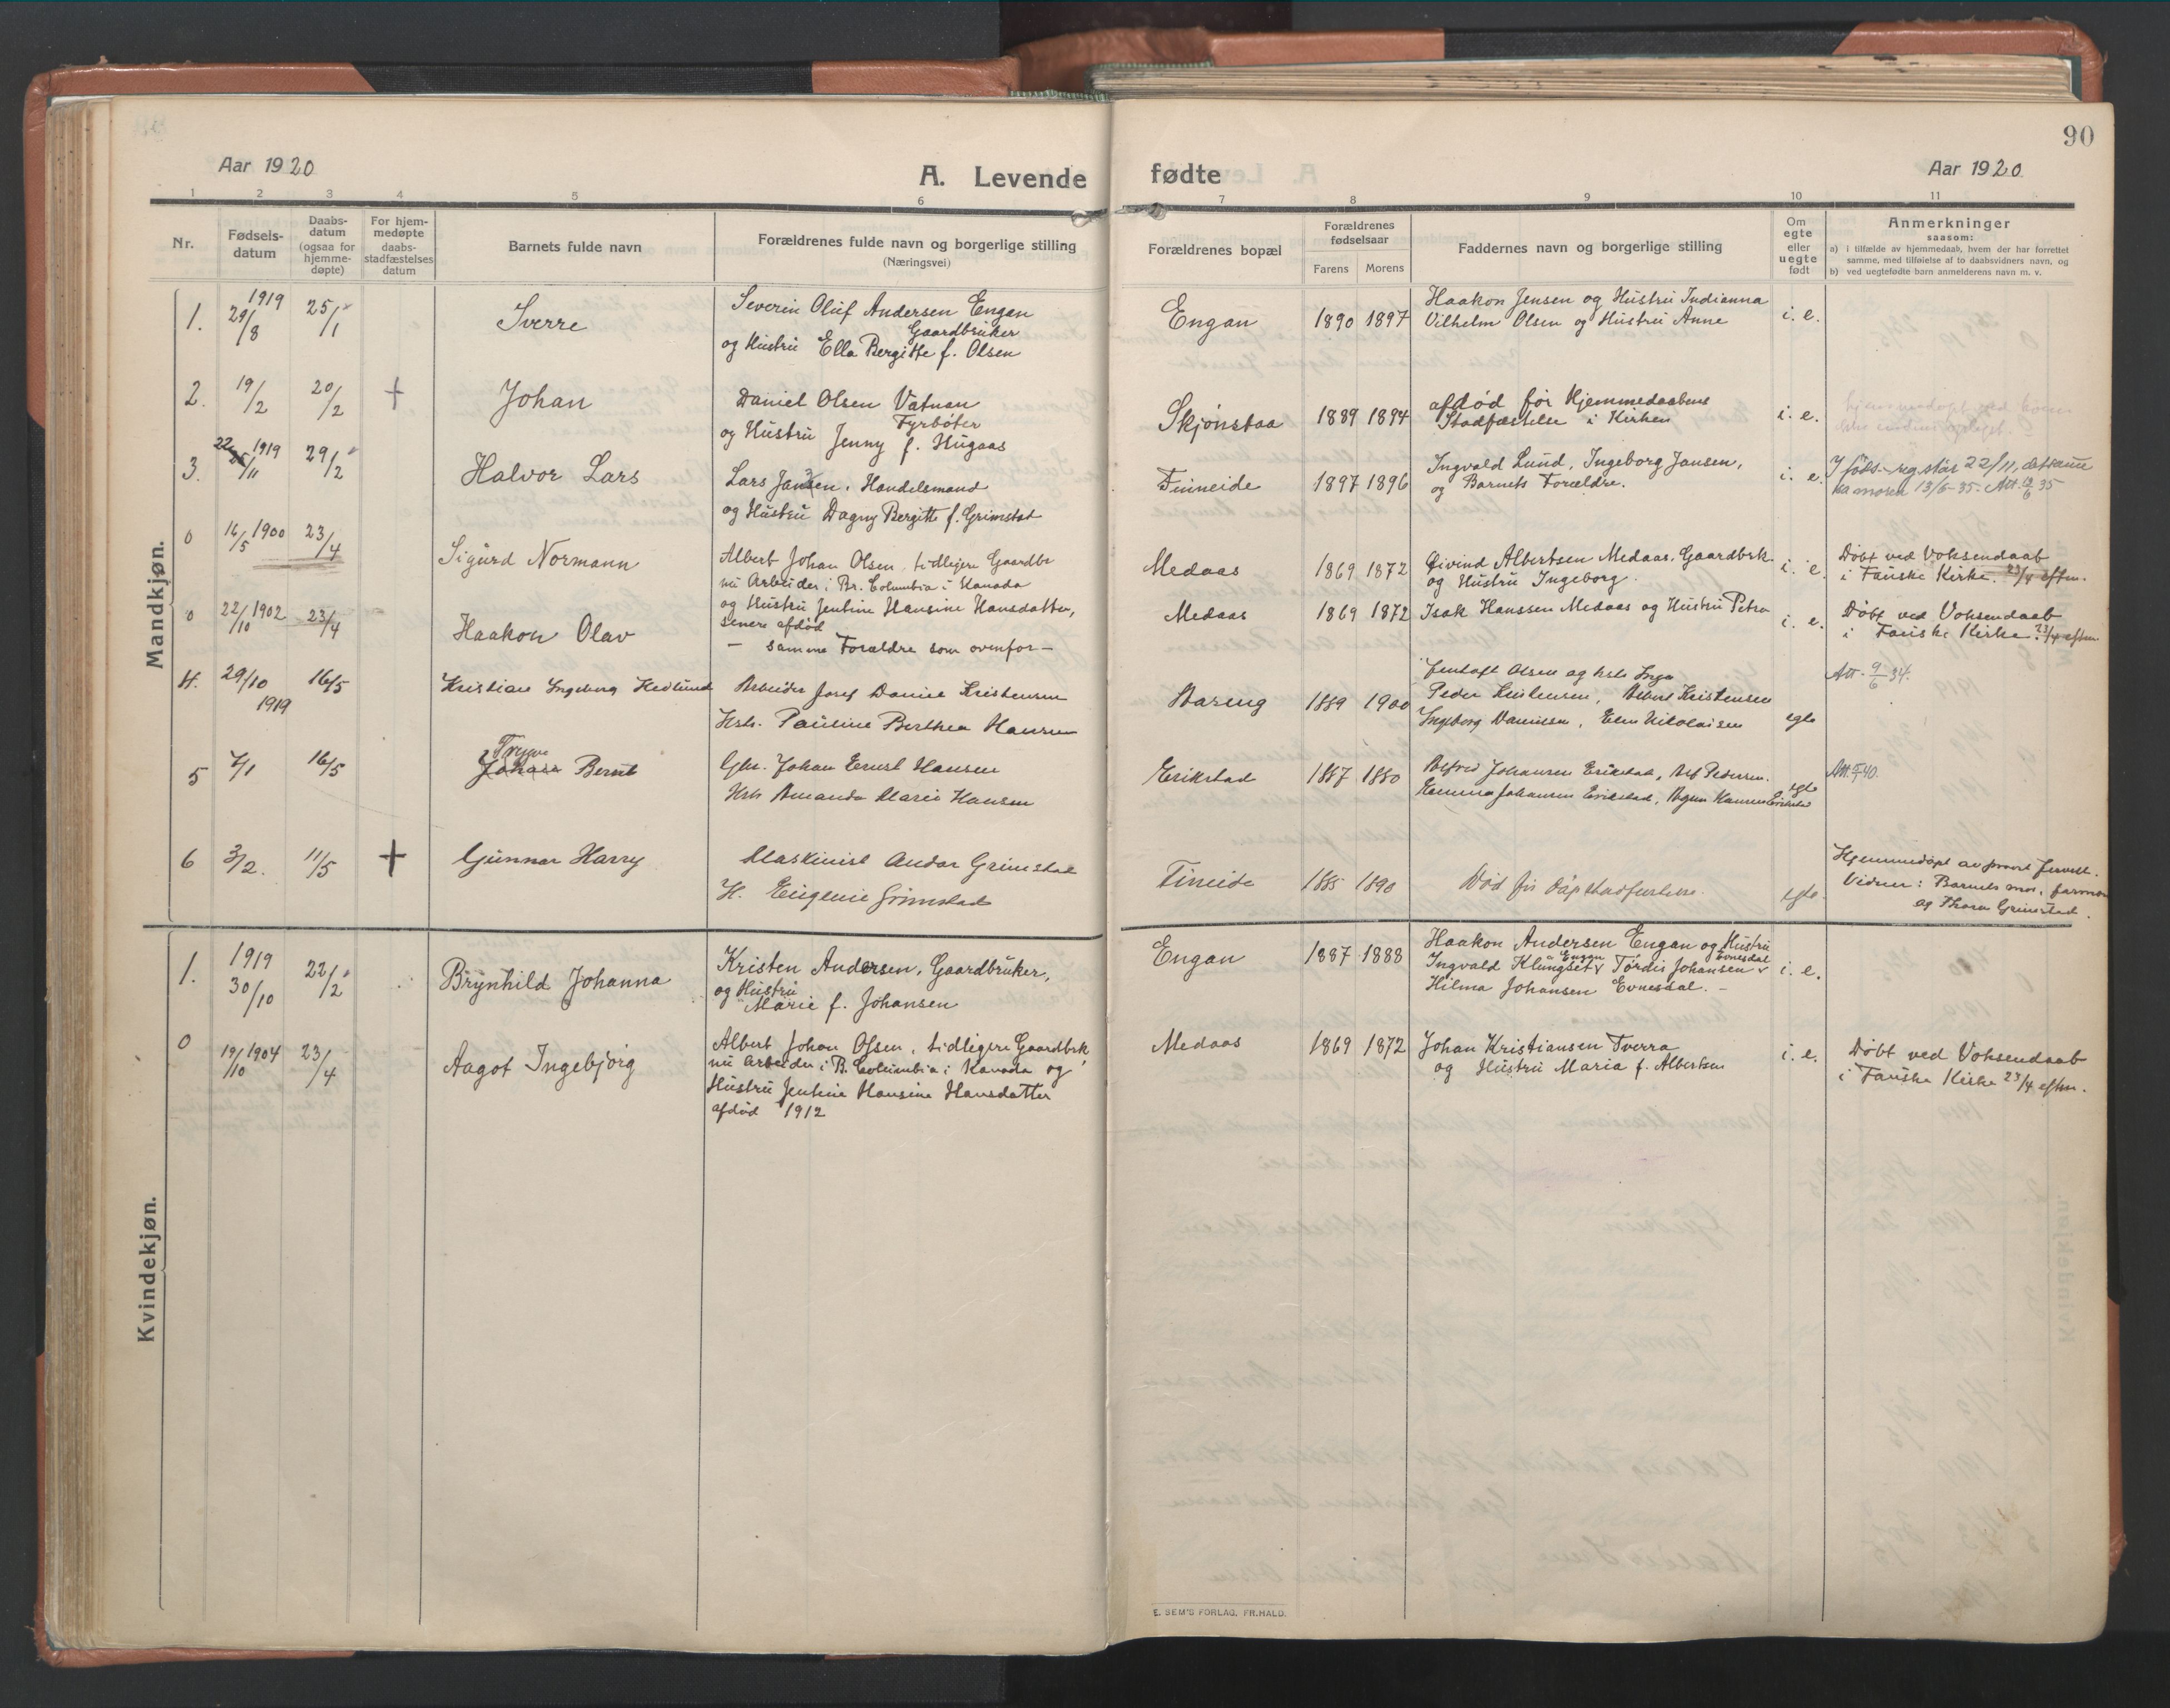 90
Aar 1920
A. Levende
fødte
Aar 1920
1 2 3 4 5 6 7 8 9 10 11
Nr.
Fødsels-
datum
Daabs-
datum
(ogsaa for
hjemme-
døpte)
For hjem-
medøpte
daabs-
stadfæstelses
datum
Barnets fulde navn
Forældrenes fulde navn og borgerlige stilling
(Næringsvei)
Forældrenes bopæl
Forældrenes
fødselsaar
Farens Morens
Faddernes navn og borgerlige stilling
Om
egte
eller
uegte
født
Anmerkninger
saasom:
a) i tilfælde av hjemmedaab, hvem der har forrettet
samme, med tilføielse af to daabsvidners navn, og
b) ved uegtefødte barn anmelderens navn m. v.
Mandkjøn.
1. 1919 29/8 25/1
Sverre
Severin Oluf Andersen Engen
Gaardbruker
og Hustru Ella Bergitte f. Olsen
Engan
1890 1897
Haakon Jensen og Hustru Indianna
Vilhelm Olsen og Hustru Anne
i. e.
2. 19/2 20/2 +
Johan
Daniel Olsen Vatnan
Fyrbøter
og Hustru Jenny f. Hugaas
Skjønstaa
1889 1894
afdød før Hjemmedaabens
Stadfæstelse i Kirken
i. e.
3. 22 1919 /11 29/2
Halvor Lars
Lars Jansen, Handelsmand
og Hustru Dagny Bergitte f. Grimstad
Finneide
1897 1896
Ingvald Lund, Ingeborg Jansen,
og Barnets Forældre.
i. e.
I føds.reg står 22/11, det samme
sa moren 13/6-35. Att. 35
0 16/5 1900 23/4
Sigurd Normann
Albert Johan Olsen, tidligere Gaardbr
nu Arbeider i Br. Columbia i Kanada
og Hustru Jentine Hansine Hansdatter,
senere afdød
Medaas
1869 1872
Øivind Albertsen Medaas, Gaardbrk.
og Hustru Ingeborg.
i. e.
Døbt ved Voksendaab
i Fauske Kirke. 23/4 eftm.
0 22/10 1902 23/4
Haakon Olav
— samme Forældre som ovenfor —
Medaas
1869 1872
Isak Hanssen Medaas og Hustru Petra
i. e.
Døbt ved Voksendaab
i Fauske Kirke. 23/4 eftm
4. 29/10 1919 16/5
Kristian Ingeberg Hedlund
Arbeider Josef Daniel Kristensen
Hstr. Pauline Berthea Hansen
1889 1900
Jentoft Olsen og hstr Inga
Peder Kristensen, Albert Kristensen
Ingeborg Danielsen, Elen Nikolaisen
egte
Att. 9/6 34.
5 7/1 16/5
Trygve
Johan Bernt
Gbr. Johan Ernst Hansen
Hstr Amanda Marie Hansen
Erikstad
1887 1880
Alfred Johansen Erikstad, Alf Pedersen.
Emma Johansen Erikstad, Hansen Erikstad
egte
Att. 40.
6 3/2. 11/5 +
Gunnar Harry
Maskinist Andor Grimstad
H. Eugenie Grimstad
Fineide
1885 1890
Død før dåpstadfestelse.
egte.
Hjemmedøpt av
Vidner: Barnets mor, farmor
og Thora Grimstad.
Kvindekjøn.
1. 1919 30/10 22/2
Brynhild Johanna
Kristen Andersen, Gaardbruker,
og Hustru
Marie f. Johansen
Engan
1887 1888
Haakon Andersen Engan og Hustru
Engan Evnesdal
Ingvald Klungset Tordis Johansen
Hilma Johansen Evnesdal. –
i. e.
0 19/10 1904 23/4
Aagot Ingebjørg
Albert Johan Olsen, tidligere Gaardbrk,
nu Arbeider i B. Columbia i Kanada og
Hustru Jentine Hansine Hansdatter
afdød 1912
Medaas
1869 1872
Johan Kristiansen Tverra
og Hustru Maria f. Albertsen
i. e.
Døbt ved Voksendaab
i Fauske Kirke 23/4 eftm.
E. SEM'S FORLAG, FR.HALD.